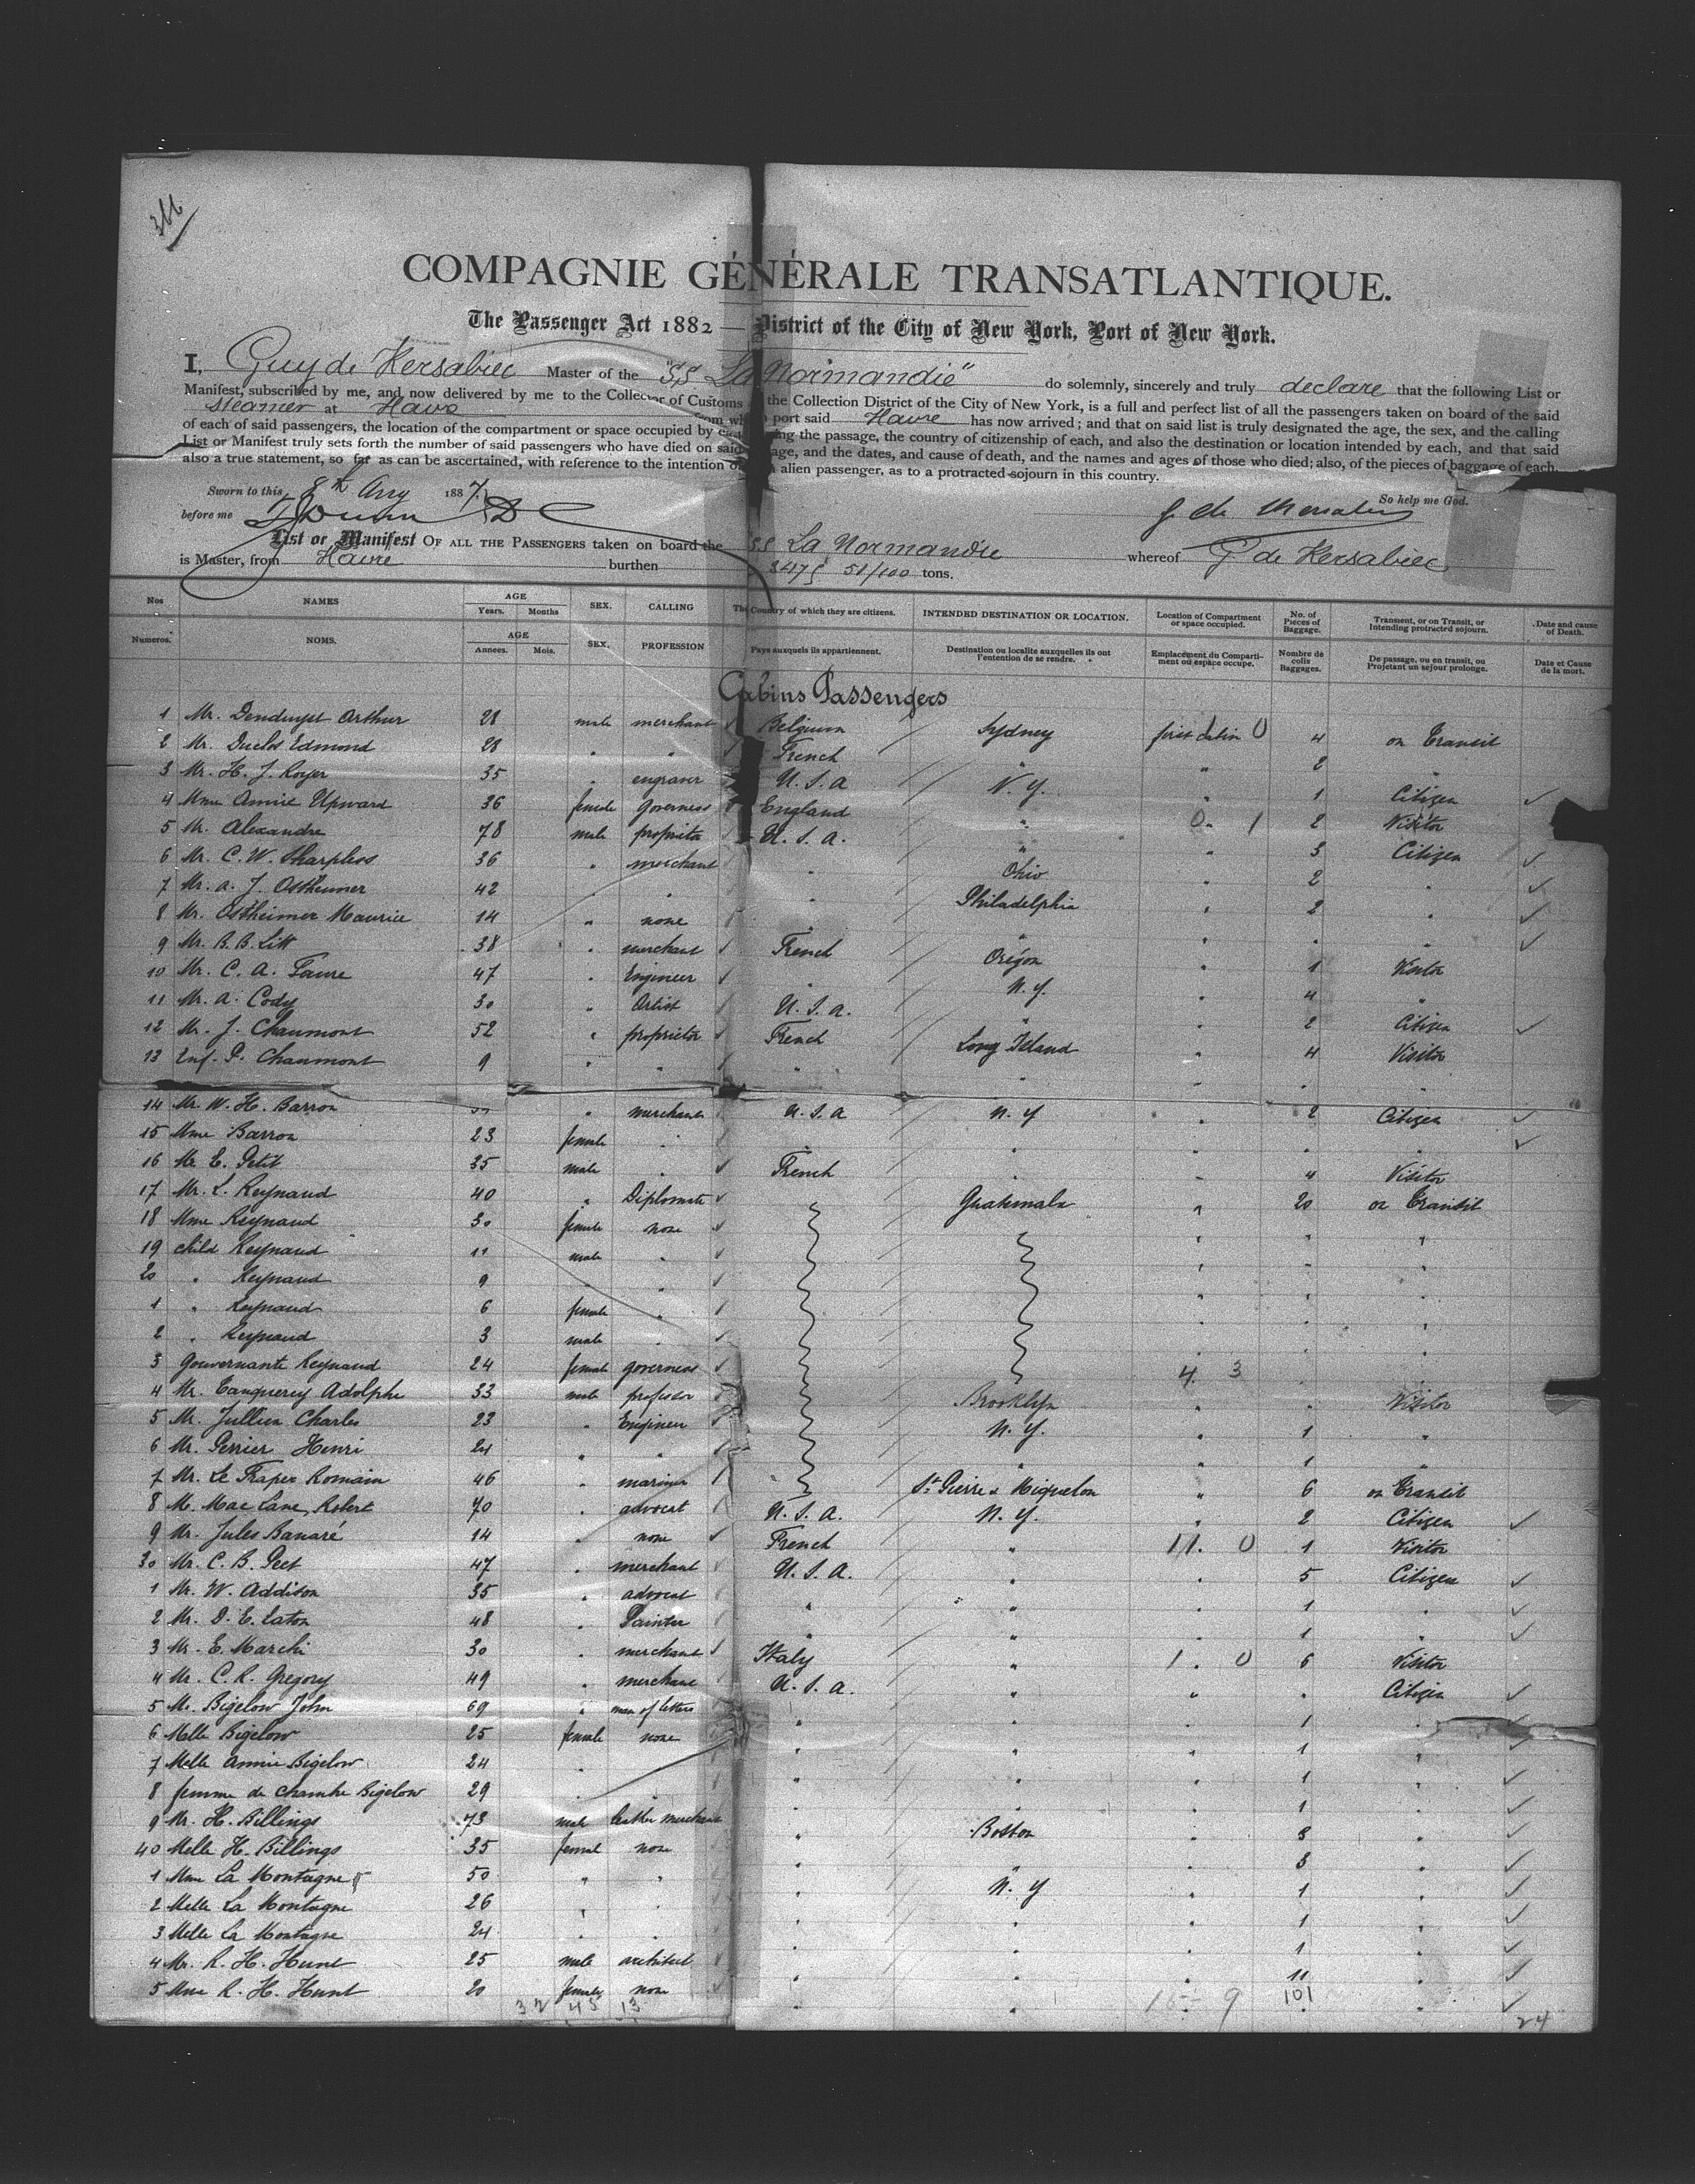 366
COMPAGNIE GÉNÉRALE TRANSATLANTIQUE.
The Passenger Act 1882 — District of the City of New York, Port of New York.
I, Guy de Kersabiec Master of the "S.S La Normandie" do solemnly, sincerely and truly declare that the following List or
Manifest, subscribed by me, and now delivered by me to the Collector of Customs the Collection District of the City of New York, is a full and perfect list of all the passengers taken on board of the said
steamer at Havre from which port said Havre has now arrived; and that on said list is truly designated the age, the sex, and the calling
of each of said passengers, the location of the compartment or space occupied by each during the passage, the country of citizenship of each, and also the destination or location intended by each, and that said
List or Manifest truly sets forth the number of said passengers who have died on said age, and the dates, and cause of death, and the names and ages of those who died; also, of the pieces of baggage of each,
also a true statement, so far as can be ascertained, with reference to the intention of alien passenger, as to a protracted sojourn in this country.
Sworn to this 8th Aug 1887. So help me God.
before me G. de Kersabiec
List or Manifest OF ALL THE PASSENGERS taken on board the S.S La Normandie whereof G de Kersabiec
is Master, from Havre burthen 3475 51/100 tons.
Nos NAMES AGE Years. Months SEX. CALLING The Country of which they are citizens. INTENDED DESTINATION OR LOCATION. Location of Compartment or space occupied. No. of Pieces of Baggage. Transient, or on Transit, or Intending protructed sojourn. Date and cause of Death.
Numeros. NOMS. AGE Annees. Mois. SEX. PROFESSION Pays auxquels ils appartiennent. Destination ou localite auxquelles ils ont l'entention de se rendre. Emplacement du Compartiment ou espace occupe. Nombre de colis Baggages. De passage, ou en transit, ou Projetant un sejour prolonge. Date et Cause de la mort.
Cabins Passengers
1 Mr. Denduyst Arthur 28 male merchant Belgium Sydney first Cabin 0 4 on Transit
2 Mr. Duclos Edmond 28 " " French " " 2 "
3 Mr. H. J. Royer 35 " engraver U.S.a N.Y. " 1 Citizen ✓
4 Mme Annie Upward 36 female governess England " 0 1 2 Visitor
5 Mr. Alexandre 78 male proprietor U.S.A. " " 3 Citizen ✓
6 Mr. C. W. Sharpless 36 " merchant " Ohio " 2 " ✓
7 Mr. A. J. Ostheimer 42 " " " Philadelphia " 2 " ✓
8 Mr. Ostheimer Maurice 14 " none " " " " " ✓
9 Mr. B. B. Litt 38 " merchant French Orégon " 1 Visitor
10 Mr. C. A. Faure 47 " Engineer " N.Y. " 4 "
11 Mr. A. Cody 30 " Artist U.S.a. " " 2 Citizen ✓
12 Mr. J. Chaumont 52 " proprietor French Long Island " 4 Visitor
13 Enf. P. Chaumont 9 " " " " " "
14 Mr. W. H. Barron " merchant U.S.a N.Y " 2 Citizen ✓
15 Mme Barron 23 female " " " " " " ✓
16 Mr. E. Petit 35 male " French " " 4 Visitor
17 Mr. L. Reynaud 40 " Diplomate Guatemala " 20 on Transit
18 Mme Reynaud 30 female none " " "
19 child Reynaud 11 male " " " "
20 " Reynaud 9 " " " " "
1 " Reynaud 6 female " " " "
2 " Reynaud 3 male " " " "
3 Gouvernante Reynaud 24 female governess 4. 3 " "
4 Mr. Tanquerey Adolphe 33 male professor Brooklyn " " Visitor
5 Mr. Jullien Charles 23 " Engineer N.Y. " 1 "
6 Mr. Perrier Henri 24 " " " " 1 "
7 Mr. Le Fraper Romain 46 " mariner St Pierre & Miquelon " 6 on Transit
8 M. Mac Lane, Robert 70 " advocat U.S.A. N.Y. " 2 Citizen ✓
9 Mr. Jules Banaré 14 " none French " 11. 0 1 Visitor
30 Mr. C. B. Peet 47 " merchant U.S.A. " " 5 Citizen ✓
1 Mr. W. Addison 35 " advocat " " " 1 " ✓
2 Mr. D. E. Eaton 48 " Painter " " " 1 " ✓
3 Mr. E. Marchi 30 " merchant Italy " 1. 0 6 Visitor
4 Mr. C. R. Gregory 49 " merchant U.S.a. " " " Citizen ✓
5 Mr. Bigelow John 69 " man of letters " " " 1 " ✓
6 Melle Bigelow 25 female none " " " 1 " ✓
7 Melle Annie Bigelow 24 " " " " " 1 " ✓
8 femme de chambre Bigelow 29 " " " " " 1 " ✓
9 Mr. H. Billings 73 male leather merchant " Boston " 8 " ✓
40 Melle H. Billings 35 female none " " " 8 " ✓
1 Mme La Montagne 50 " " " N.Y " 1 " ✓
2 Melle La Montagne 26 " " " " " 1 " ✓
3 Melle La Montagne 24 " " " " " 1 " ✓
4 Mr. R. H. Hunt 25 male architect " " " 11 " ✓
5 Mme R. H. Hunt 20 female none " " " " " ✓
32 45 13 15 - 9 101 24